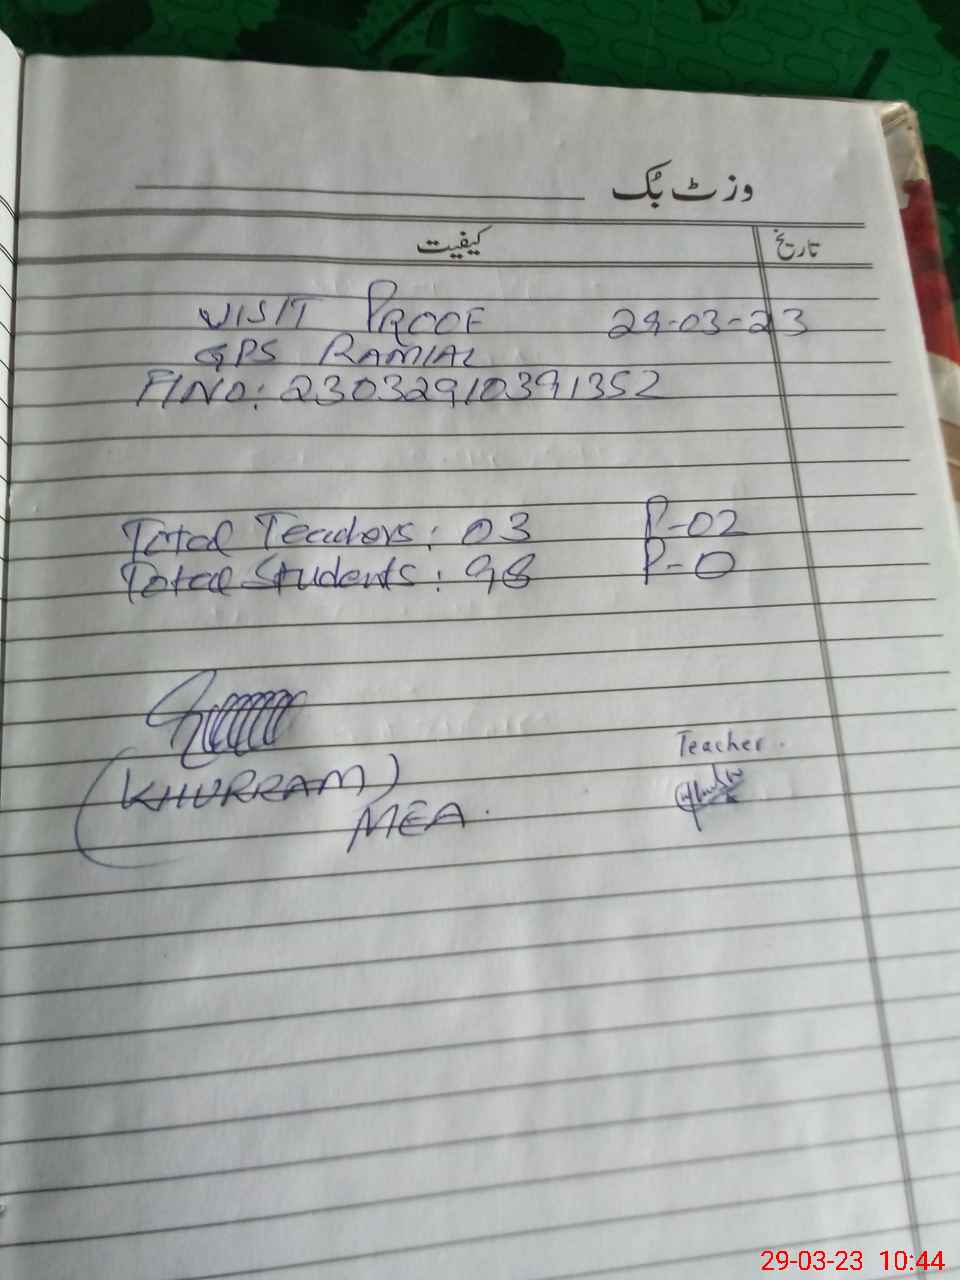 وزٹ بُک
کیفیت تاریخ
VISIT PROOF 29-03-23
GPS RAMIAL
FINO: 23032910391352
Total Teachers: 03 P-02
Total Students: 98 P-0
(KHURRAM)
MEA.
Teacher.
29-03-23 10:44